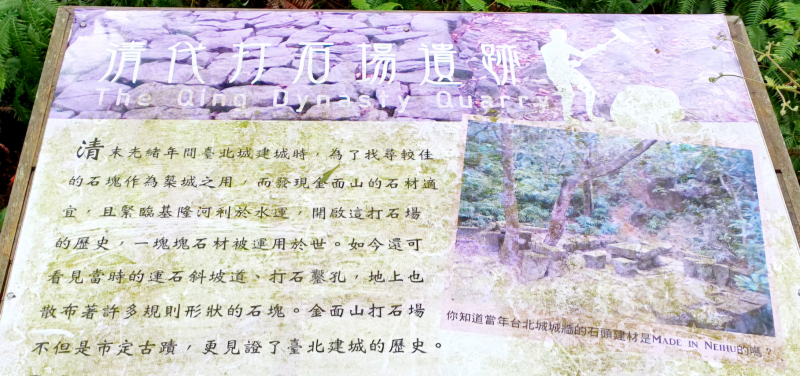 清代打石場遺跡
The Qing Dynasty Quarry
清末光緒年間臺北城建城時，為了找尋較佳
的石塊作為築城之用，而發現金面山的石材適
宜，且緊臨基隆河利於水運，開啟這打石場
的歷史，一塊塊石材被運用於世。如今還可
看見當時的運石斜坡道、打石鑿孔，地上也
散布著許多規則形狀的石塊。金面山打石場
不但是市定古蹟，更見證了臺北建城的歷史。
你知道當年台北城城牆的石頭建材是MADE IN NEIHU的嗎？